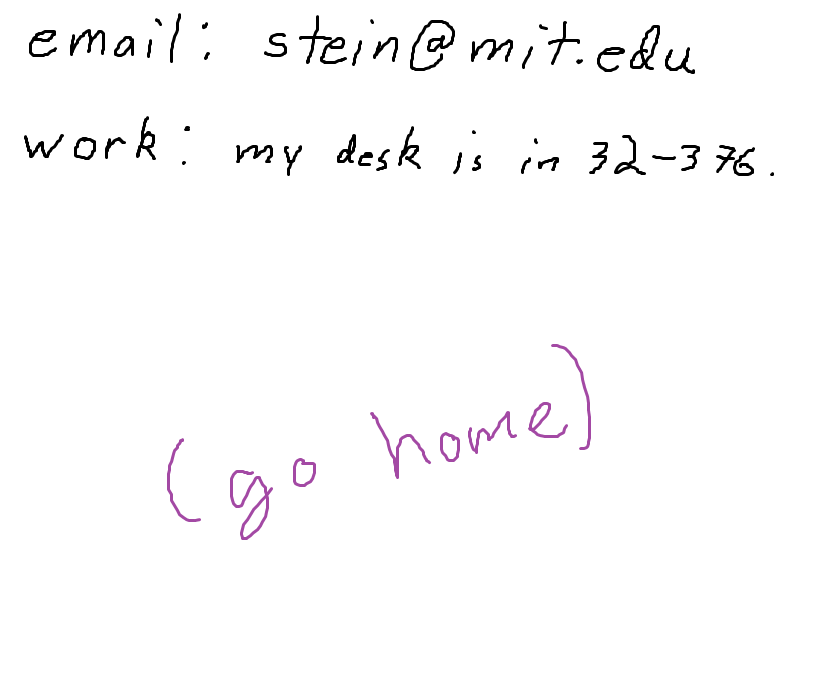 email: stein@mit.edu
work: my desk is in 32-376.
(go home)